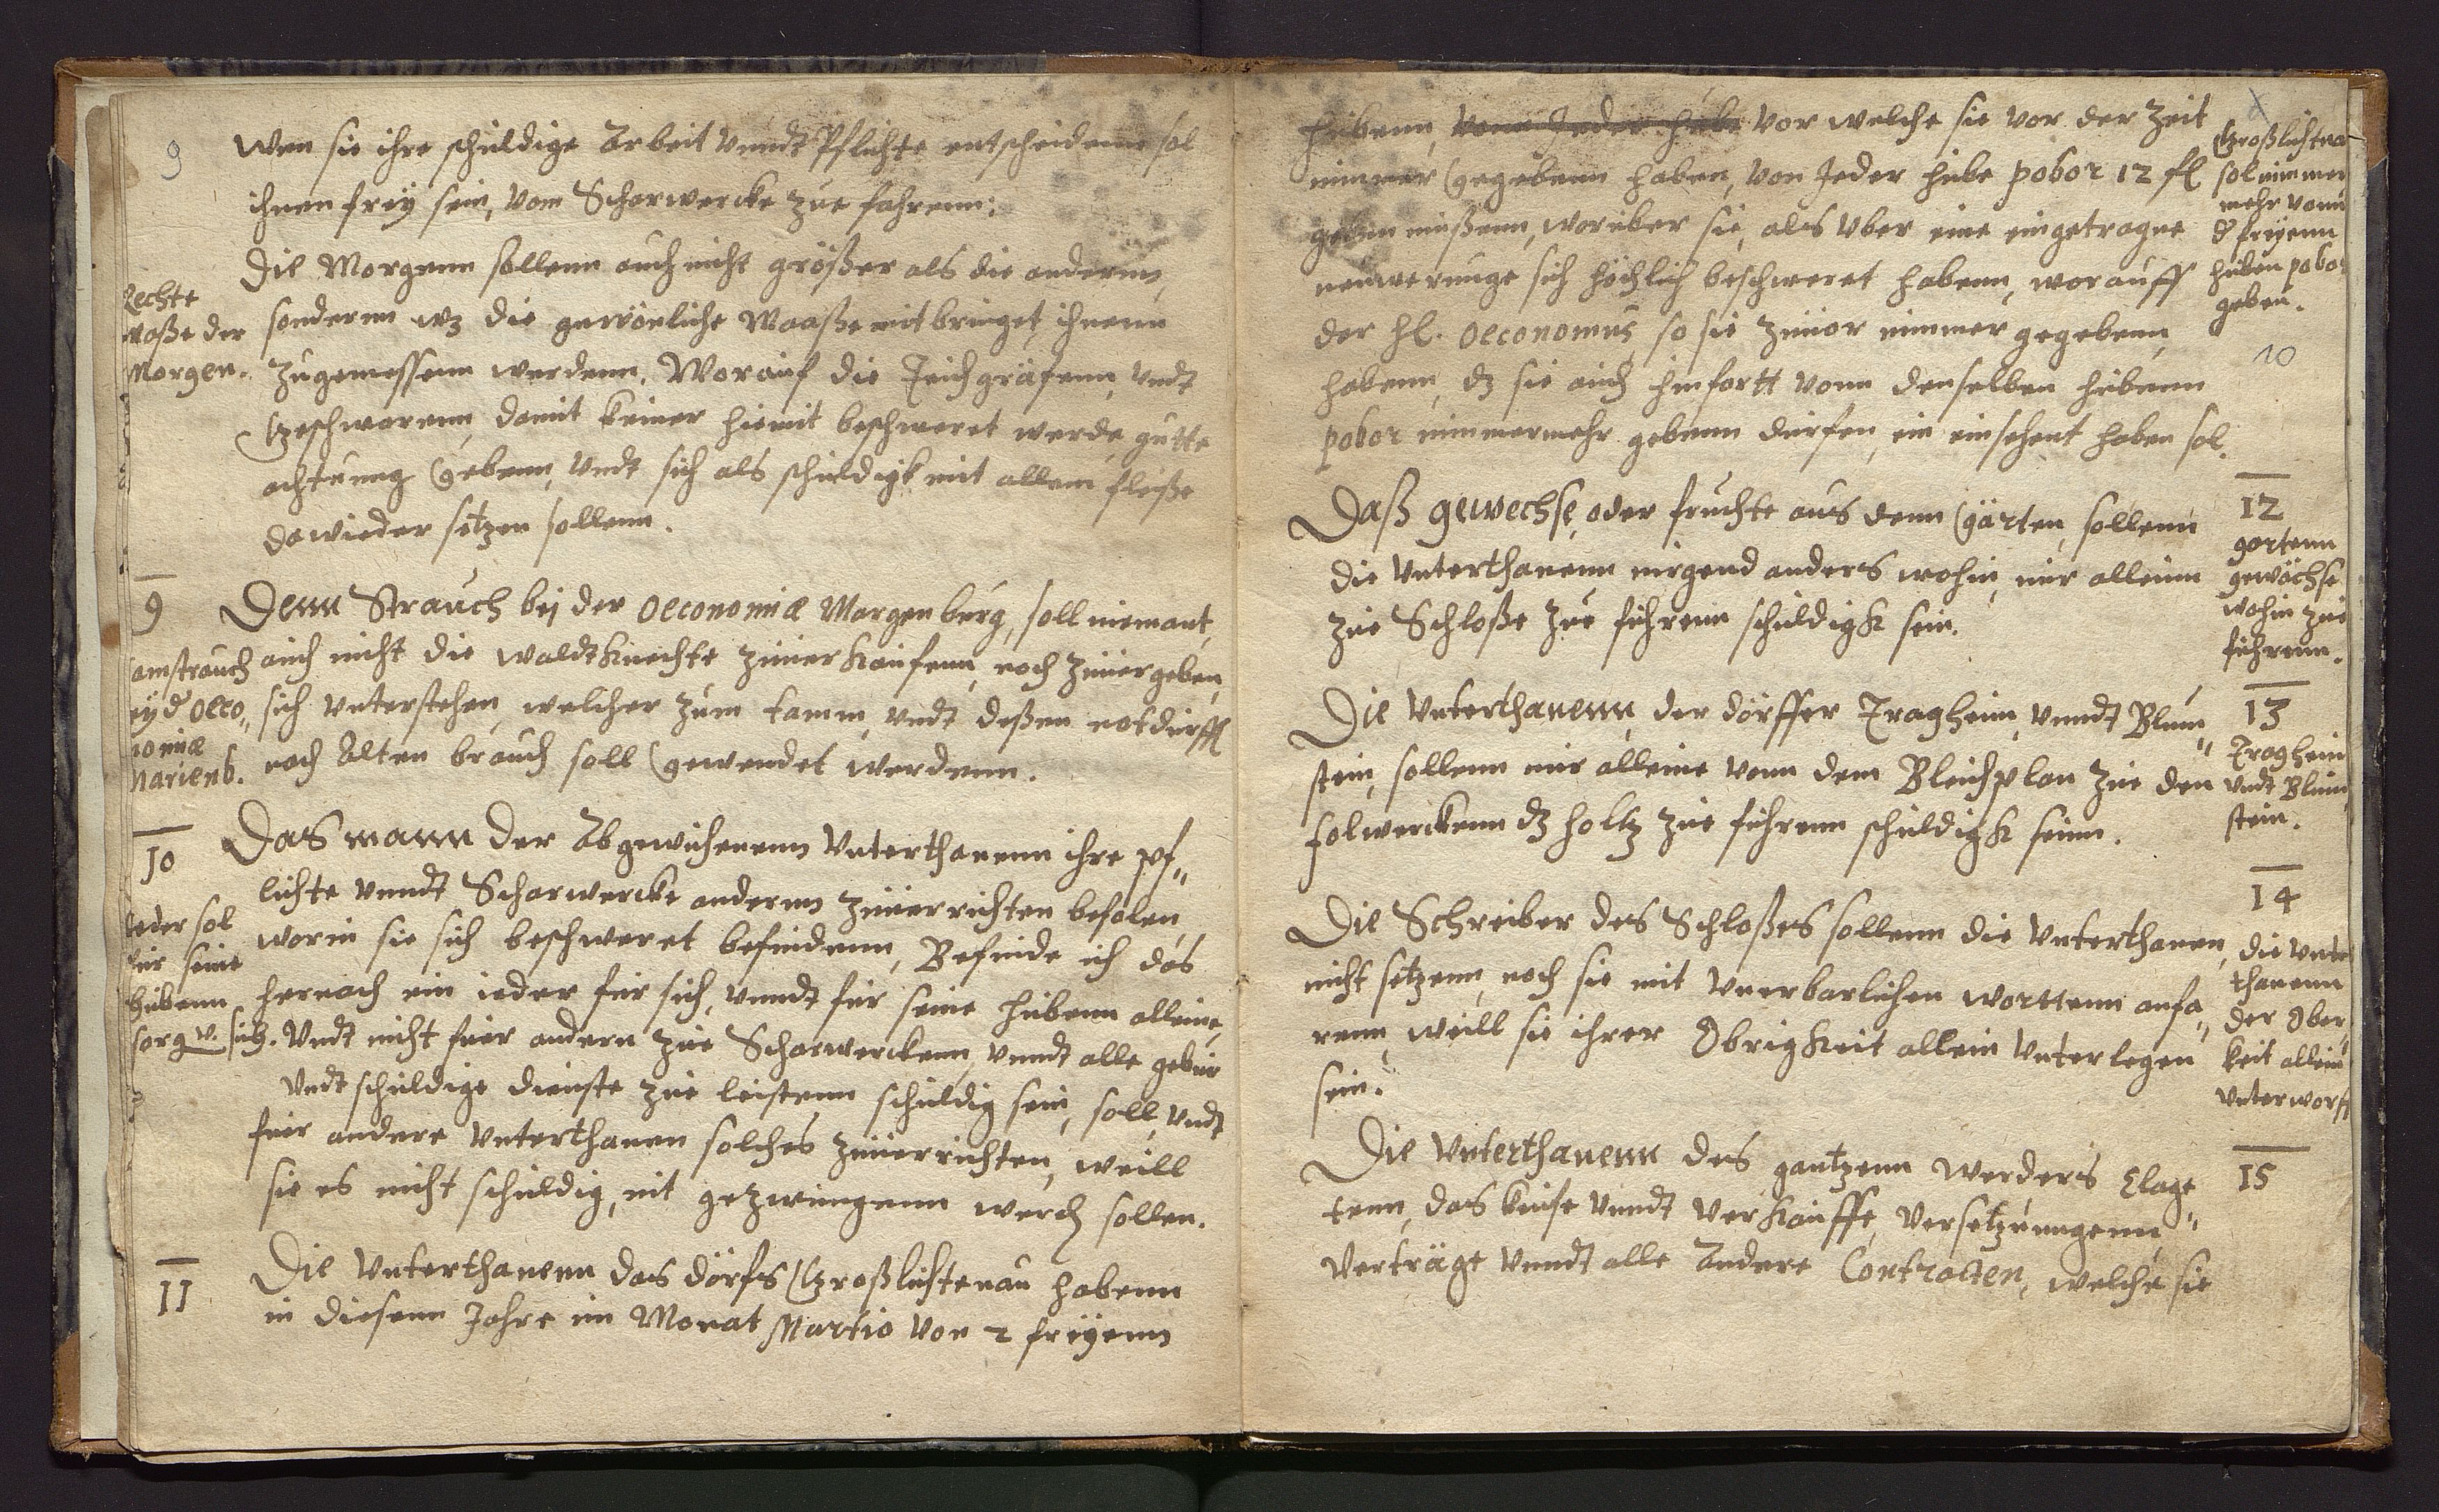 9
Wen sie ihre schuldige Arbeit vnndt Pflichte entscheidenn sol
ihnen frey sein, vom Scharwercke zue fahrenn:
Die Morgenn sollenn auch nicht größer als die anderenn,
sonderen wz die gewönliche Maaße mit bringet, ihnenn
zugemessenn werdenn. Worauf die Teichgräfenn, vndt
Geschworenn, damit keiner hiemit beschweret werde, gutte
achtunng Gebenn, vndt sich als schuldigk mit allem fleiße
dawieder setzen sollenn.
Rechte
maße der
Morgen.
9
Denn Strauch bej der Oeconomiæ Margenburg, soll niemant,
auch nicht die waldtknechte zuuerkaufenn, noch zuuergeben,
sich vnterstehen, welcher zum tamm, vndt deßen notdurfft
nach Alten brauch soll Gewendet werdenn.
amstrauch
eyd Oeco„
nomiæ
Marienb.
10
Das mann der Abgewichenenn Vnterthanenn ihre pf„
lichte vnndt Scharwercke anderenn zuuerrichten befolen,
worin sie sich beschweret befindenn, Befinde ich das
hernach ein ieder für sich, vnndt für seine hubenn alleine,
vndt nicht fuer andern zue Scharwerckenn, vnndt alle gebur
vndt schuldige dienste zue leistenn schuldig sein, soll, vndt
fuer andere Vnterthanen solches zuuerrichten, weill
sie es nicht schuldig, nit gezwungenn werdn sollen.
Jeder sol
für seine
hubenn
sorg
11
Die Vnterthanenn das dörfs Großlichtenau habenn
in diesenn Jahre im Monat Martio von 2 freyenn
hubenn, vonn Jeder hube vor welche sie vor der Zeit
nimmer Gegebenn haben, von Jeder hube pobor 12 fl
geben müßenn, worüber sie, als vber eine eingetragne
neuwerunge sich höchlich beschweret habenn, worauff
der Hl. Oeconomus, so sie zuuor nimmer gegebenn
habenn, dz sie auch hinfortt vonn denselben hubenn
pobor nimmermehr gebenn dürfen, ein einsehent haben sol.
Großlichtna
sol nimmer
mehr vonn
d freyenn
huben pobor
geben.
10
Daß gewechse, oder fruchte aus denn Gärten, sollenn
die Vnterthanenn nirgend anders wohin, nur alleinn
zue Schloße zue führenn schuldigk sein.
12
gartenn
gewächse
wohin zue
führenn.
Die Vnterthanenn, der dörffer Tragheim, vnndt Blum„
stein, sollenn nur alleine vonn dem Bleichplan zue den
folwerckenn dz holtz zue führenn schuldigk seinn.
13
Tragheim
vndt Blum
stein.
Die Schreiber des Schloßes sollenn die Vnterthanen,
nicht setzenn, noch sie mit vnerbarlichen worttenn anfa„
renn, weill sie ihrer Obrigkeit allein vnterlegen
sein.
14
die Vnter
thanenn
der Ober„
keit allein
vnterworff
Die Vnterthanenn des gantzenn Werders Klage„
tenn, das keufe vnndt verkauffe, versetzunngenn
verträge vnndt alle Andere Contracten, welche sie
15